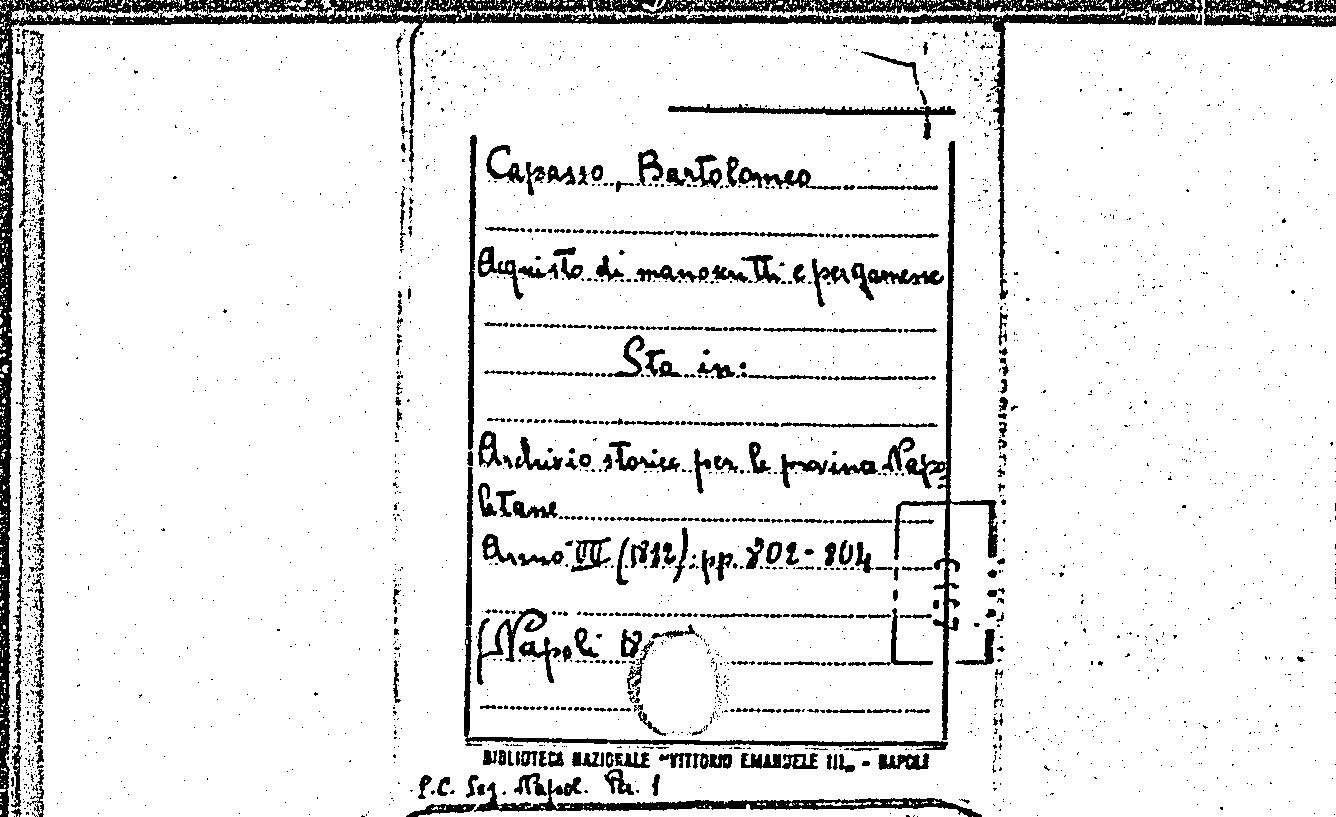 Capasso, Bartolomeo
Acquisto di manoscritti e pergamene
Sta in:
Archivio storico per le province Napo
letane
Anno VII (1882): pp. 802-804
Napoli 18
BIBLIOTECA NAZIONALE "VITTORIO EMANUELE III" - NAPOLI
P.C. Sez. Napol. Per. 1